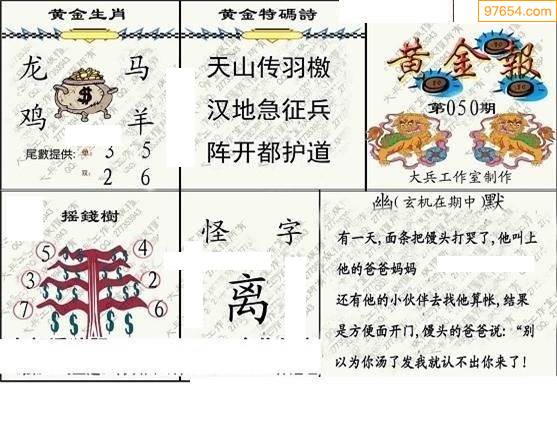 97654.com
黄金生肖
龙 马
鸡 羊
尾數提供: 单: 3 5
双: 2 6
黄金特碼詩
天山传羽檄
汉地急征兵
阵开都护道
黄金報
第050期
大兵工作室制作
摇錢樹
5 4
3 2
7 1
怪 字
离
幽(玄机在期中)默
有一天,面条把馒头打哭了,他叫上
他的爸爸妈妈
还有他的小伙伴去找他算帐,结果
是方便面开门,馒头的爸爸说:"别
以为你汤了发我就认不出你来了!